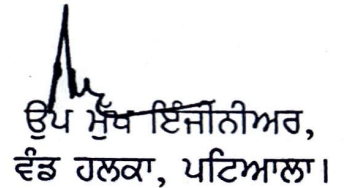 ਉਪ ਮੁੱਖ ਇੰਜੀਨੀਅਰ,
ਵੰਡ ਹਲਕਾ, ਪਟਿਆਲਾ।